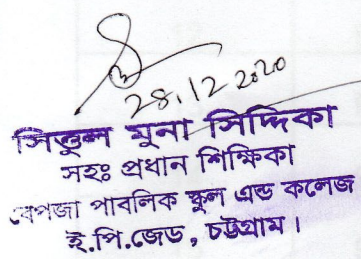 28.12.2020
সিতুল মুনা সিদ্দিকা
সহঃ প্রধান শিক্ষিকা
বেপজা পাবলিক স্কুল এন্ড কলেজ
ই.পি.জেড, চট্টগ্রাম।